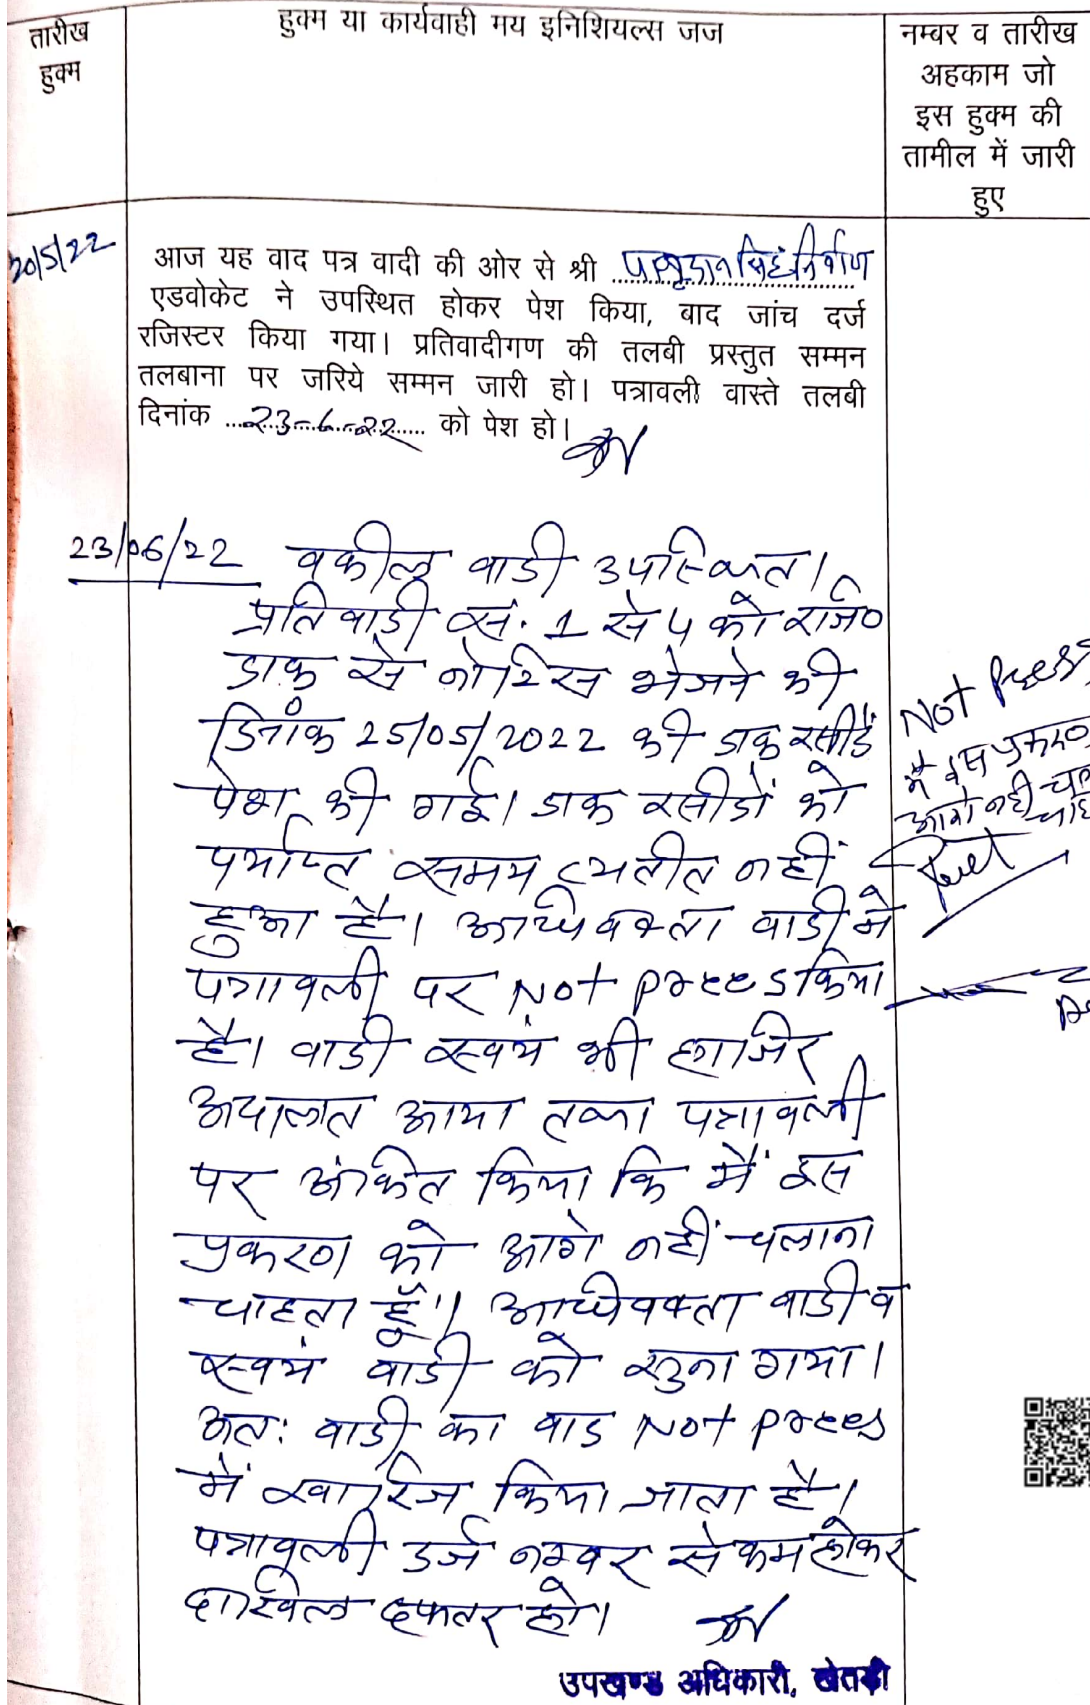 तारीख
हुक्म
हुक्म या कार्यवाही मय इनिशियल्स जज
नम्बर व तारीख
अहकाम जो
इस हुक्म की
तामील में जारी
हुए
20/5/22
आज यह वाद पत्र वादी की ओर से श्री सिंह निर्वाण
एडवोकेट ने उपस्थित होकर पेश किया, बाद जांच दर्ज
रजिस्टर किया गया। प्रतिवादीगण की तलबी प्रस्तुत सम्मन
तलबाना पर जरिये सम्मन जारी हो। पत्रावली वास्ते तलबी
दिनांक 23-6-22 को पेश हो।
23/06/22 वकील वादी उपस्थित।
प्रतिवादी सं. 1 से 4 को रजि०
डाक से नोटिस भेजने की
दिनांक 25/05/2022 की डाक रसीदें
पेश की गई। डाक रसीदों को
पर्याप्त समय व्यतीत नहीं
हुआ है। अधिवक्ता वादी ने
पत्रावली पर Not prees किया
है। वादी स्वयं भी हाजिर
अदालत आया तथा पत्रावली
पर अंकित किया कि मैं इस
प्रकरण को आगे नहीं चलाना
चाहता हूँ। अधिवक्ता वादी व
स्वयं वादी को सुना गया।
अतः वादी का वाद Not prees
में खारिज किया जाता है।
पत्रावली दर्ज नम्बर से कम होकर
दाखिल दफ्तर हो।
उपखण्ड अधिकारी, खेतडी
Not Press
मैं इस प्रकरण
आगे नहीं